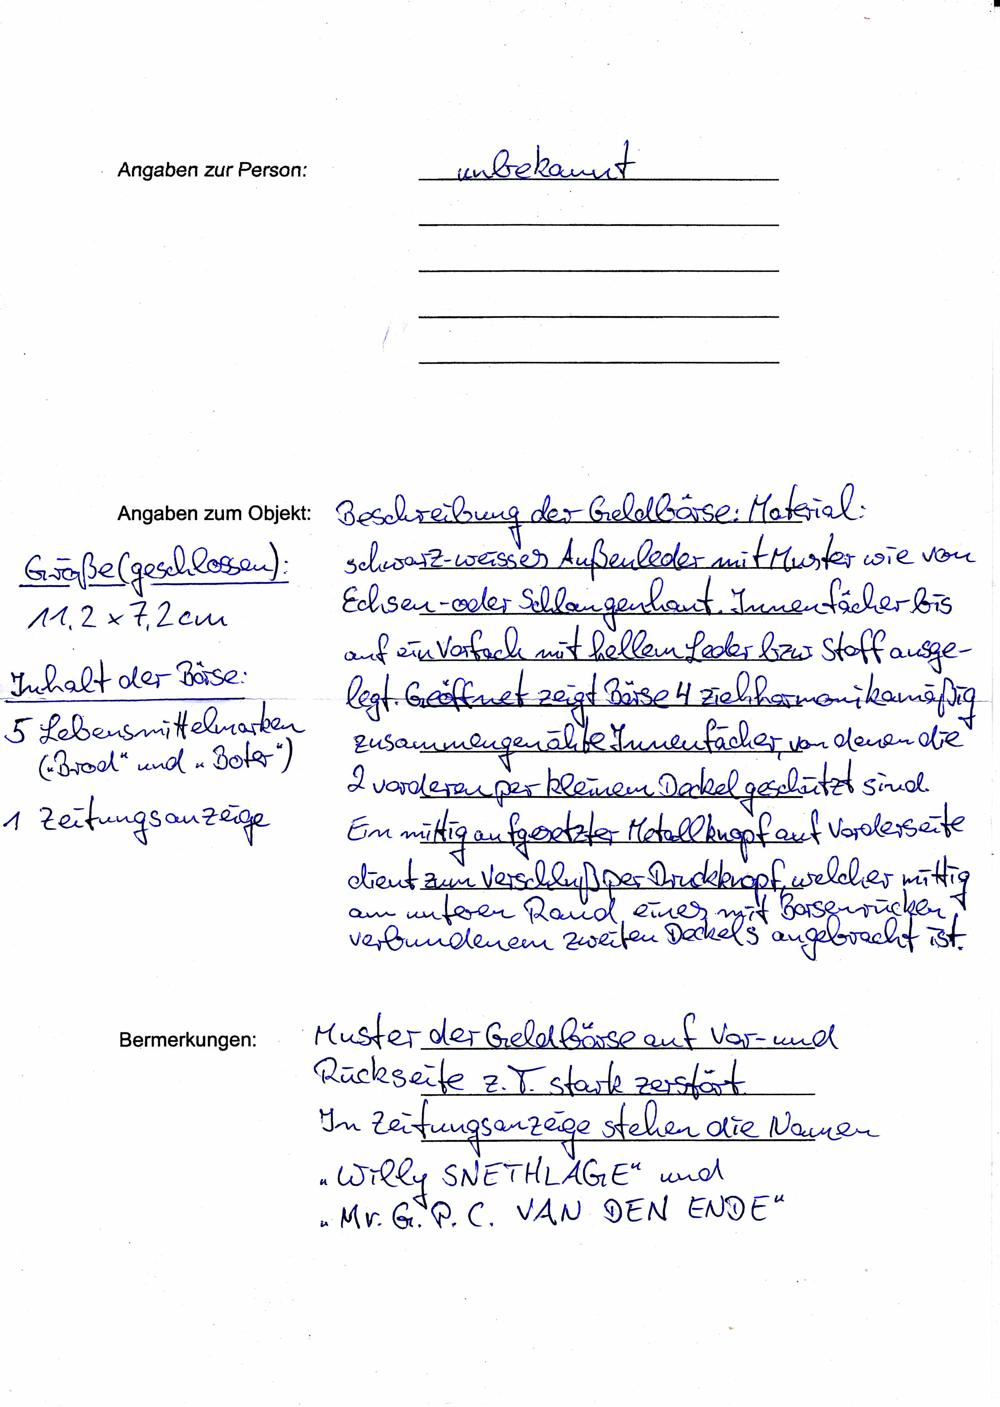 Angaben zur Person: unbekannt
Angaben zum Objekt: Beschreibung der Geldbörse: Material:
schwarz-weisses Außenleder mit Muster wie von
Echsen- oder Schlangenhaut. Innenfächer bis
auf ein Vorfach mit hellem Leder bzw Stoff ausge-
legt. Geöffnet zeigt Börse 4 ziehharmonikamäßig
zusammengenähte Innenfächer, von denen die
2 vorderen per kleinem Deckel geschützt sind.
Ein mittig aufgesetzter Metallknopf auf Vorderseite
dient zum Verschluß per Druckknopf, welcher mittig
am unteren Rand eines mit Börsenrücken
verbundenem zweiten Deckels angebracht ist.
Größe (geschlossen):
11,2 x 7,2 cm
Inhalt der Börse:
5 Lebensmittelmarken
("Brod" und "Boter")
1 Zeitungsanzeige
Bermerkungen: Muster der Geldbörse auf Vor- und
Rückseite z.T. stark zerstört.
In Zeitungsanzeige stehen die Namen
"Willy SNETHLAGE" und
"Mr. G. P. C. VAN DEN ENDE"